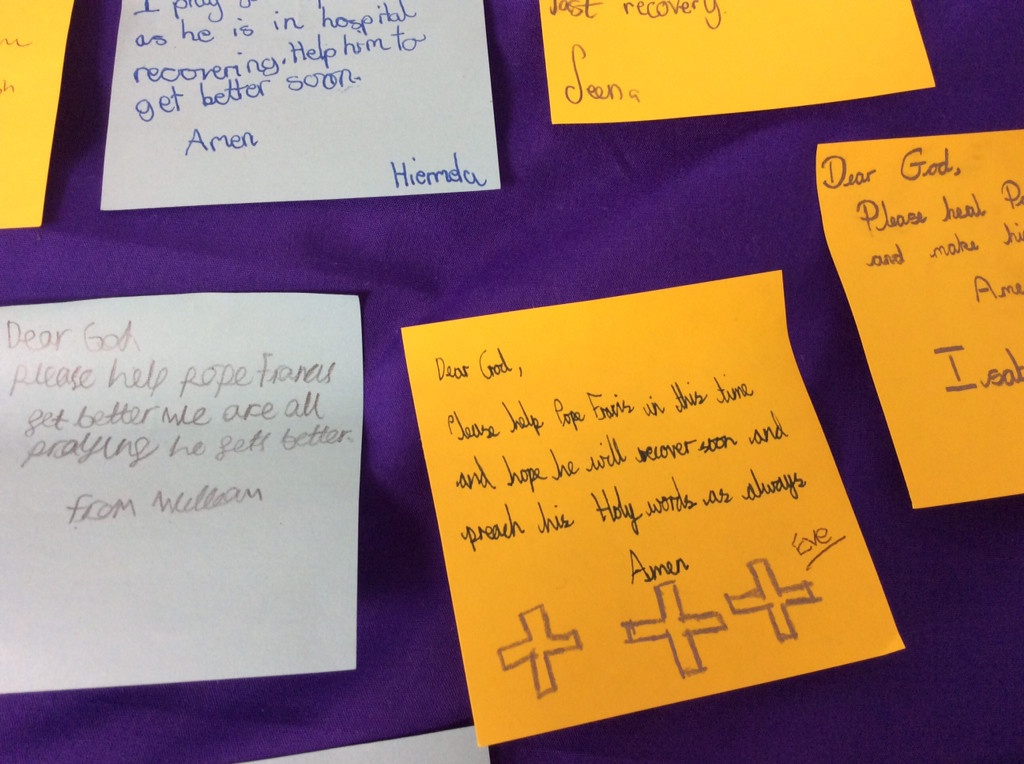 I pray
as he is in hospital
recovering. Help him to
get better soon.
Amen
Hiermela
fast recovery.
Seena
Dear God,
Please heal
and make
Isab
Dear God
please help pope Francis
get better we are all
praying he gets better.
from William
Dear God,
Please help Pope Francis in this time
and hope he will recover soon and
preach his Holy words as always
Amen
Eve